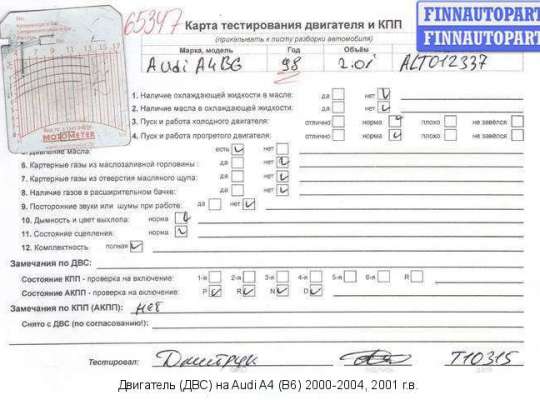 65347
Карта тестирования двигателя и КПП
FINNAUTOPART
FINNAUTOPART
(прикалывать к листу разборки автомобиля)
Марка, модель Год Объём
Audi A4B6 98 2.0i ALT012337
MOTOMETER
1. Наличие охлаждающей жидкости в масле: да нет
2. Наличие масла в охлаждающей жидкости: да нет
3. Пуск и работа холодного двигателя: отлично норма плохо не завёлся
4. Пуск и работа прогретого двигателя: отлично норма плохо не завёлся
5. Давление масла: есть нет
6. Картерные газы из маслозаливной горловины: да нет
7. Картерные газы из отверстия масляного щупа: да нет
8. Наличие газов в расширительном бачке: да нет
9. Посторонние звуки или шумы при работе: да нет
10. Дымность и цвет выхлопа: норма
11. Состояние сцепления: норма
12. Комплектность полная
Замечания по ДВС:
Состояние КПП - проверка на включение: 1-я 2-я 3-я 4-я 5-я 6-я R
Состояние АКПП - проверка на включение: P R N D
Замечания по КПП (АКПП): нет
Снято с ДВС (по согласованию!):
Тестировал: Дмитрук T10315
Двигатель (ДВС) на Audi A4 (B6) 2000-2004, 2001 г.в.